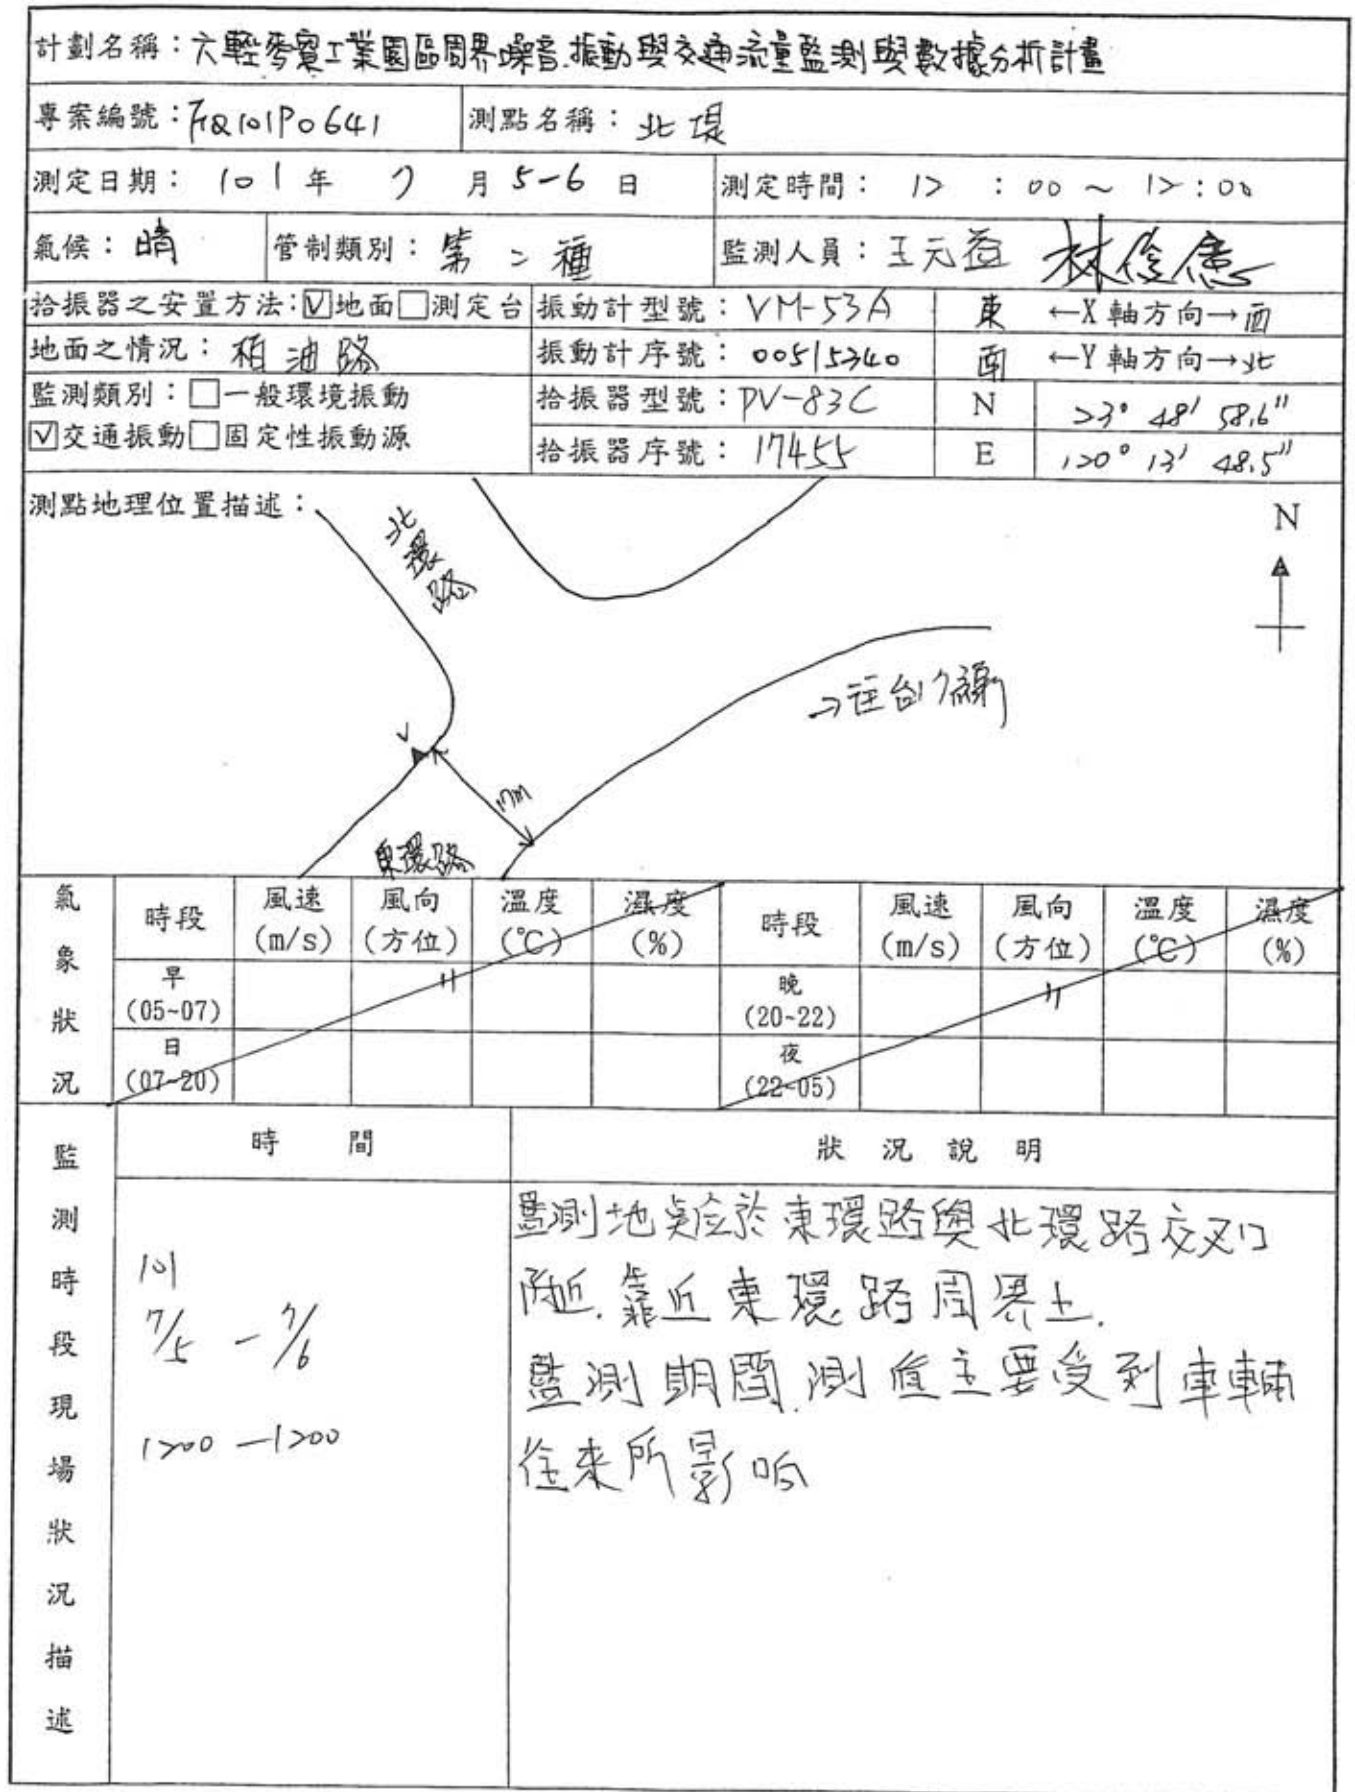 計劃名稱：六輕麥寮工業園區周界噪音.振動與交通流量監測與數據分析計畫
專案編號：FQ101P0641 測點名稱：北堤
測定日期：101年 7 月 5-6 日 測定時間：12 : 00 ~ 12 : 00
氣候：晴 管制類別：第二種 監測人員：王元益
拾振器之安置方法:☑地面□測定台 振動計型號：VM-53A 東 ←X軸方向→西
地面之情況：柏油路 振動計序號：00515340 南 ←Y軸方向→北
監測類別：□一般環境振動 拾振器型號：PV-83C N 23° 48' 58.6"
☑交通振動□固定性振動源 拾振器序號：17455 E 120° 13' 48.5"
測點地理位置描述：
北環路
N
→往台17線
V
17m
東環路
氣象狀況 時段 風速(m/s) 風向(方位) 溫度(℃) 濕度(%) 時段 風速(m/s) 風向(方位) 溫度(℃) 濕度(%)
早(05~07) 晚(20~22)
日(07~20) 夜(22~05)
監測時段現場狀況描述 時 間 狀 況 說 明
監測地點位於東環路與北環路交叉口
附近.靠近東環路周界上.
監測期間.測值主要受到車輛
往來所影响
101
7/5 - 7/6
1200 - 1200